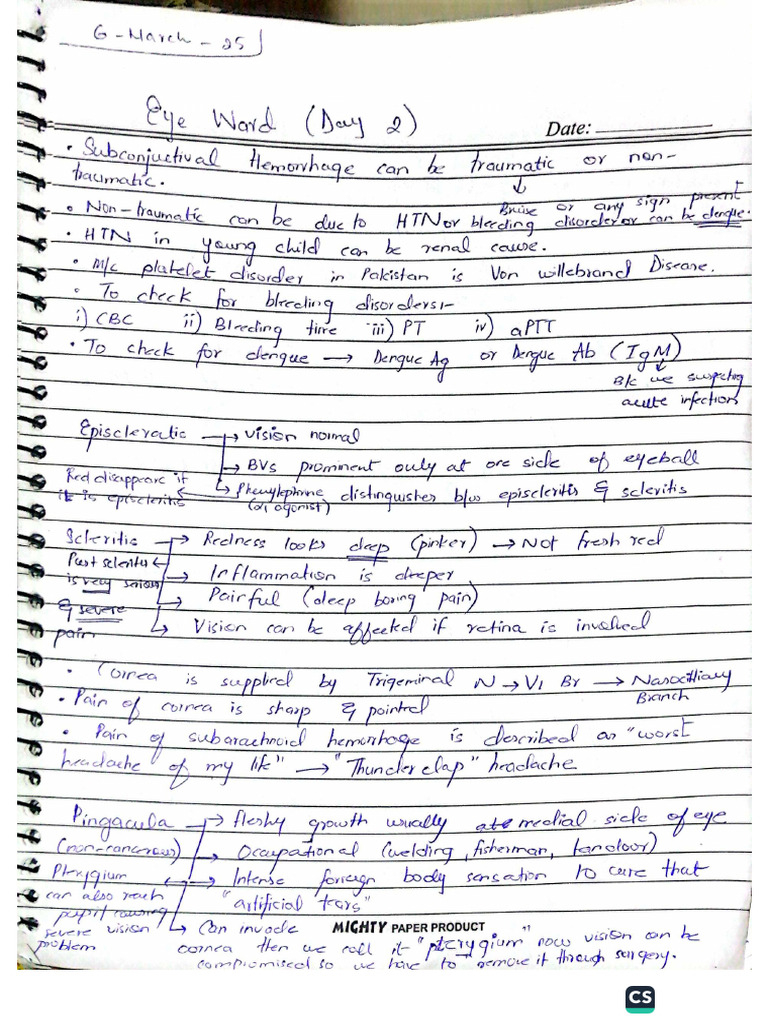 6-March-25
Eye Ward (Day 2)
Date:
• Subconjuctival Hemorrhage can be traumatic or non-
traumatic.
↓
Bruise or any sign present
• Non-traumatic can be due to HTN or bleeding disorder or can be dengue.
• HTN in young child can be renal cause.
• M/c platelet disorder in Pakistan is Von willebrand Disease.
• To check for bleeding disorders:-
i) CBC ii) Bleeding time iii) PT iv) aPTT
• To check for dengue → Dengue Ag or Dengue Ab (IgM)
↓
B/c we suspecting
acute infection
Episcleratic → vision normal
→ BVs prominent only at one side of eyeball
→ Phenylephrine distinguishes b/w episcleritis & scleritis
(α1 agonist)
Red disappear if
it is episcleritis
Scleritis → Redness looks deep (pinker) → Not fresh red
→ Inflammation is deeper
→ Painful (deep boring pain)
→ Vision can be affected if retina is involved
Post scleritis
is very serious
& severe
pain
• Cornea is supplied by Trigeminal N → V1 Br → Nasociliary
Branch
• Pain of cornea is sharp & pointed
• Pain of subarachnoid hemorrhage is described as "worst
headache of my life" → "Thunder clap" headache
Pingacula → fleshy growth usually at medial side of eye
(non-cancerous) → Occupational (welding, fisherman, tandoor)
→ Intense foreign body sensation to cure that
"artificial tears"
Pterygium
can also reach
pupil causing
severe vision
problem
→ Can invade
MIGHTY PAPER PRODUCT
cornea then we call it "pterygium" now vision can be
compromised so we have to remove it through surgery.
CS